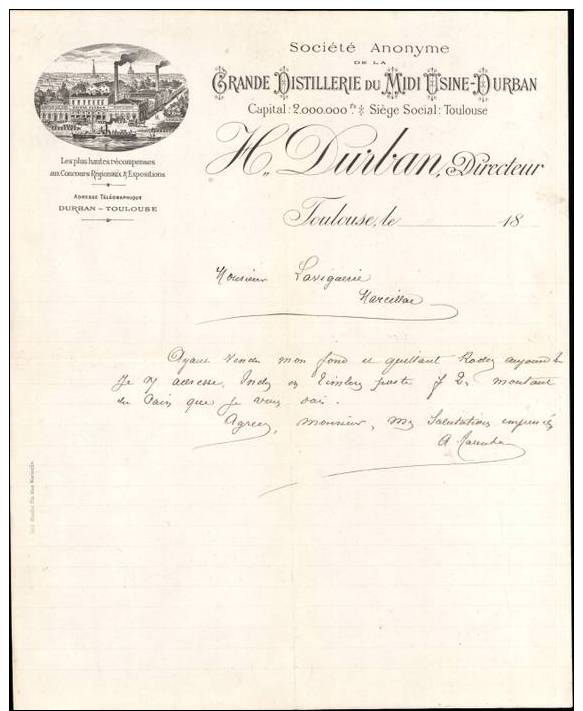 Société Anonyme
DE LA
GRANDE DISTILLERIE DU MIDI USINE-DURBAN
Capital: 2.000.000 frs Siège Social: Toulouse
H. Durban, Directeur
Toulouse, le 18
Les plus hautes récompenses
aux Concours Régionaux & Expositions
ADRESSE TÉLÉGRAPHIQUE
DURBAN - TOULOUSE
Monsieur Laviguerie
Marcillac
Ayant vendu mon fond et quittant Rodez
Je adresse timbres poste f 2, montant
du que je vous dois.
Agréez, Monsieur, mes Salutations empressées